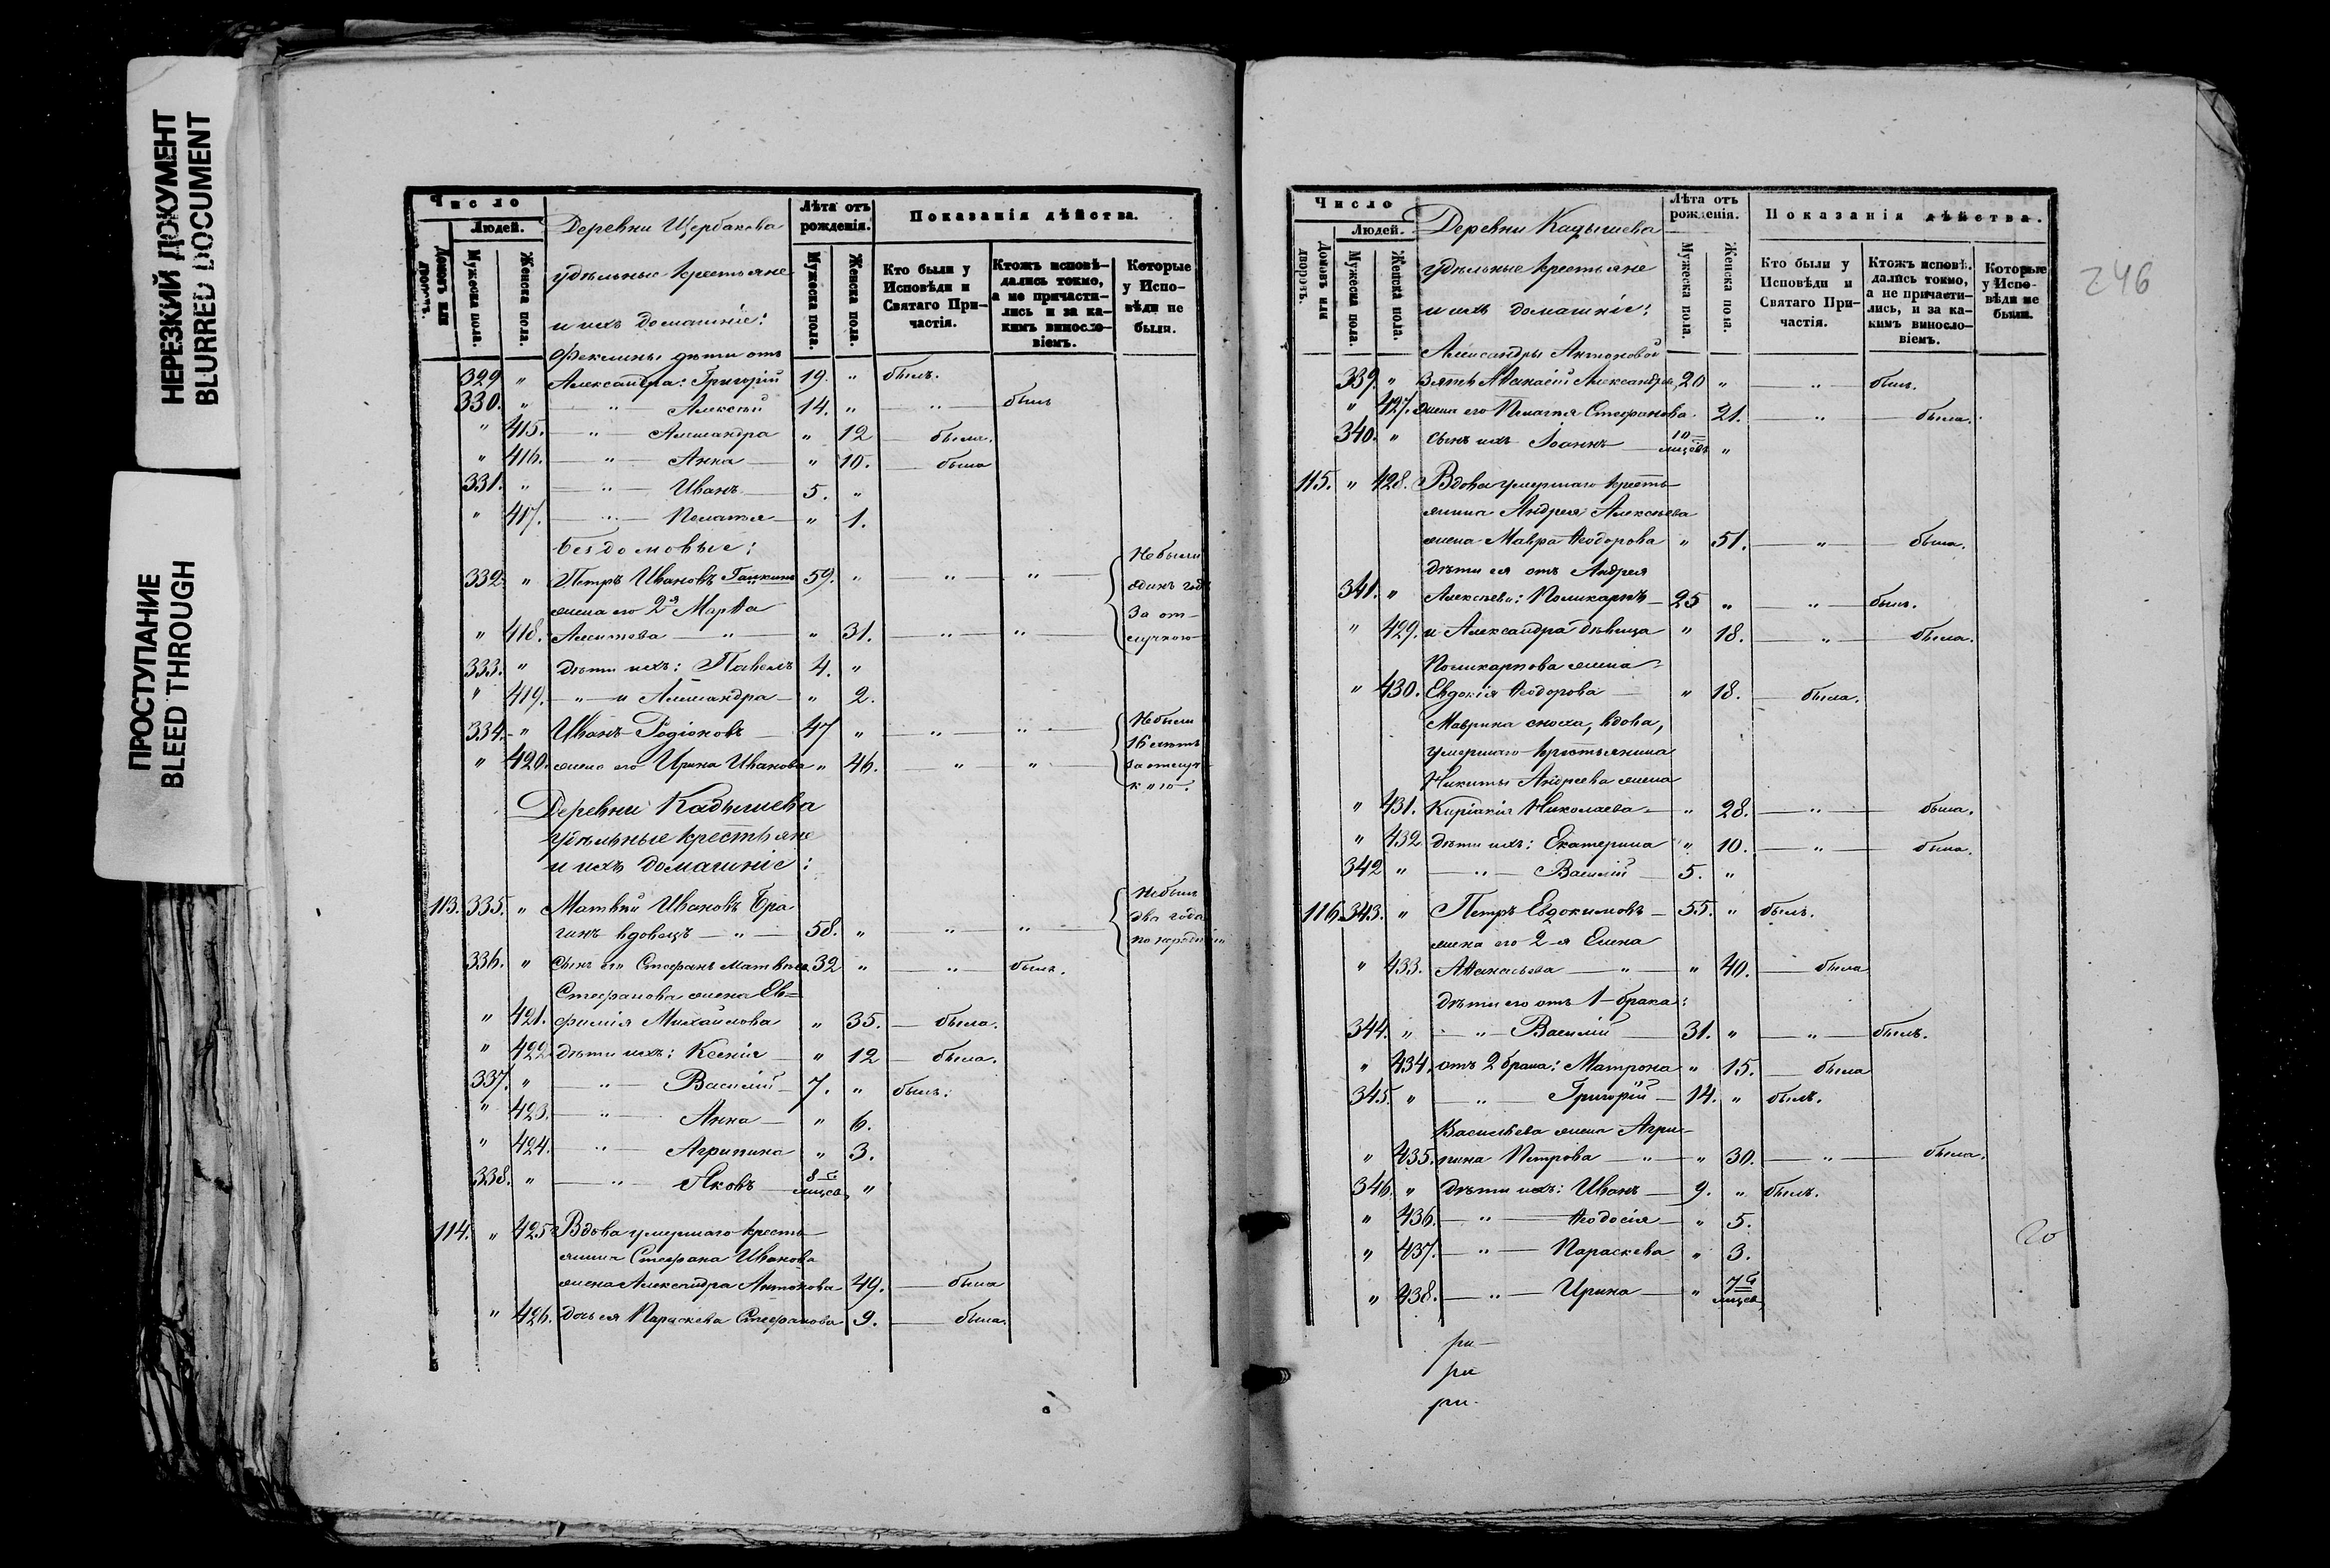 НЕРЕЗКИЙ ДОКУМЕНТ
BLURRED DOCUMENT
ПРОСТУПАНИЕ
BLEED THROUGH
Число
Людей.
Домовъ или дворовъ.
Мужеска пола.
Женска пола.
Деревни Щербакова
удѣльные крестьяне
и ихъ домашніе:
Лѣта отъ рожденія.
Мужеска пола.
Женска пола.
Показанія дѣйства.
Кто были у Исповѣди и Святаго Причастія.
Ктожъ исповѣдались токмо, а не причастились и за какимъ винословіемъ.
Которые у Исповѣди не были.
Феклины дѣти отъ
329 " Александра: Григорій 19. " былъ.
330. " — " — Алексѣй 14. " — " — былъ
" 415. — " — Александра " 12 — была.
" 416. — " — Анна — " 10. — была
331. " — " — Иванъ — 5. "
" 417. — " — Пелагея — " 1.
Бездомовые:
332. " Петръ Ивановъ Галкинъ 59. " — " — " — Не были одинъ годъ За отлучкою
жена его 2я Марѳа
" 418. — " — " 31. — " — "
333. " дѣти ихъ: Павелъ 4. "
" 419. — " — и Александра — " 2.
334. " Иванъ Родіоновъ — 47 " — " — " — Не были 16 лѣтъ За отлучкою.
" 420. жена его Ирина Иванова " 46. — " — "
Деревни Кадышева
удѣльные крестьяне
и ихъ домашніе:
113. 335. " Матвѣй Ивановъ Бра
гинъ вдовецъ — " — 58. " — " — " — Не былъ два года по нерадѣнію
336. " Сынъ его Стефанъ Матвѣев. 32 " — " — былъ.
Стефанова жена Ев=
" 421. фимія Михайлова " 35. — была.
" 422. дѣти ихъ: Ксенія — " 12 — была.
337. " — " — Василій — 7. " былъ.
" 423. — " — Анна — " 6.
" 424. — " — Агрипина " 3.
338. " — " — Яковъ 8 мѣсяц. "
114. " 425 Вдова умершаго кресть-
янина Стефана Иванова
жена Александра Антонова 49. — была
" 426. дочь ея Параскева Стефанова 9. — была.
246
Число
Людей.
Домовъ или дворовъ.
Мужеска пола.
Женска пола.
Деревни Кадышева
удѣльные крестьяне
и ихъ домашніе:
Лѣта отъ рожденія.
Мужеска пола.
Женска пола.
Показанія дѣйства.
Кто были у Исповѣди и Святаго Причастія.
Ктожъ исповѣдались токмо, а не причастились, и за какимъ винословіемъ.
Которые у Исповѣди не были.
Александры Антоновой
339. " Зять Аѳанасій Александров. 20 " — " — былъ.
" 427. жена его Пелагея Стефанова. 21. — " — была.
340. " сынъ ихъ Іоаннъ — 10 мѣсяцевъ "
115. " 428. Вдова умершаго кресть-
янина Андрея Алексѣева
жена Мавра Ѳеодорова " 51. — " — была.
дѣти ея отъ Андрея
341. " Алексѣева: Поликарпъ — 25 " — " — былъ.
" 429. и Александра дѣвица " 18. — " — была.
Поликарпова жена
" 430. Евдокія Ѳеодорова — " 18. — была.
Маврина сноха, вдова,
умершаго крестьянина
Никиты Андреева жена
" 431. Киріакія Николаева " 28. — " — была.
" 432 дѣти ихъ: Екатерина " 10. — " — была.
342 " — " — Василій — 5. "
116. 343. " Петръ Евдокимовъ — 55. " былъ.
жена его 2-я Елена
" 433. Аѳанасьева — " — " 40. — была
дѣти его отъ 1-брака:
344. " — " — Василій — 31. " — " — былъ.
" 434. отъ 2 брака: Матрона " 15. — была
345. " — " — Григорій — 14. " былъ.
Васильева жена Агри-
" 435. пина Петрова — " — " 30. — " — была.
346. " дѣти ихъ: Иванъ — 9. " былъ.
" 436. — " — Ѳеодосія — " 5.
" 437. — " — Параскева " 3.
" 438. — " — Ирина — " 7 мѣсяц.
ри-
ри
ри.